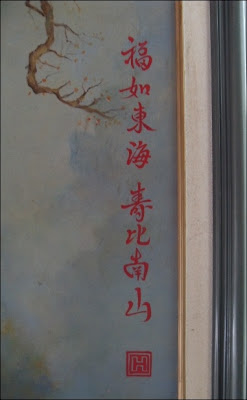 福如東海 壽比南山